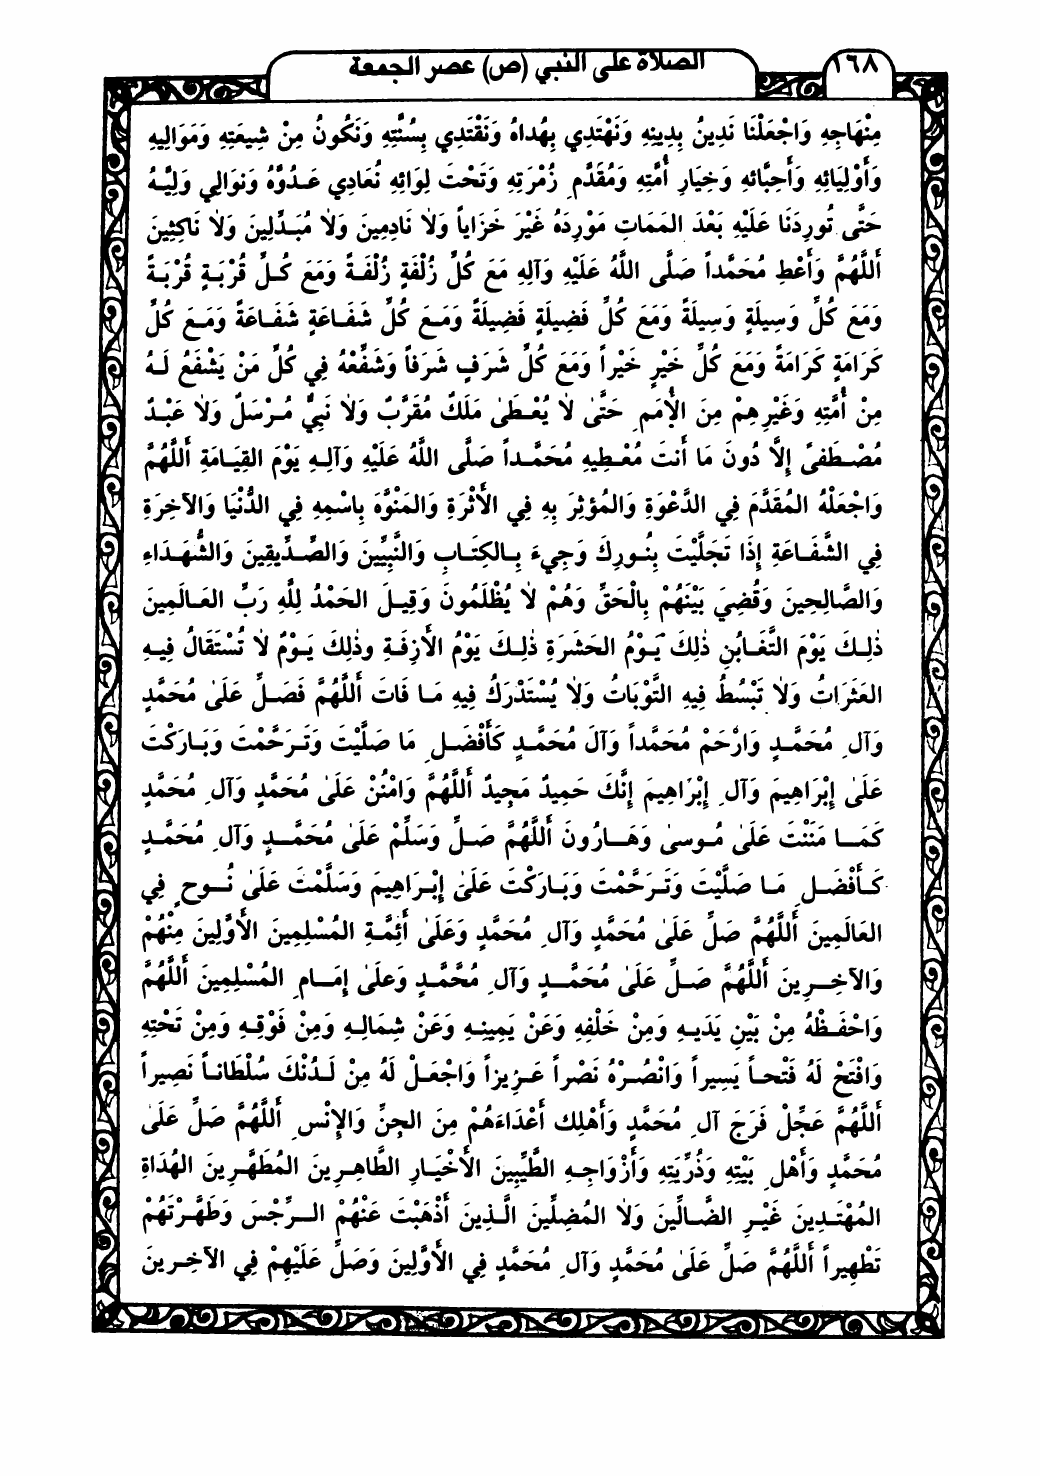 ١٦٨
الصلاة على النبي (ص) عصر الجمعة
مِنْهَاجِهِ وَاجْعَلْنَا نَدِينُ بِدِينِهِ وَنَهْتَدِي بِهُدَاهُ وَنَقْتَدِي بِسُنَّتِهِ وَنَكُونُ مِنْ شِيعَتِهِ وَمَوَالِيهِ
وَأَوْلِيَائِهِ وَأَحِبَّائِهِ وَخِيَارِ أُمَّتِهِ وَمُقَدَّمِ زُمْرَتِهِ وَتَحْتَ لِوَائِهِ نُعَادِي عَدُوَّهُ وَنُوَالِي وَلِيَّهُ
حَتَّى تُورِدَنَا عَلَيْهِ بَعْدَ المَمَاتِ مَوْرِدَهُ غَيْرَ خَزَايَاً وَلاٰ نَادِمِينَ وَلاٰ مُبَدِّلِينَ وَلاٰ نَاكِثِينَ
أَللَّهُمَّ وَأَعْطِ مُحَمَّداً صَلَّى اللَّهُ عَلَيْهِ وَآلِهِ مَعَ كُلِّ زُلْفَةٍ زُلْفَةً وَمَعَ كُلِّ قُرْبَةٍ قُرْبَةً
وَمَعَ كُلِّ وَسِيلَةٍ وَسِيلَةً وَمَعَ كُلِّ فَضِيلَةٍ فَضِيلَةً وَمَعَ كُلِّ شَفَاعَةٍ شَفَاعَةً وَمَعَ كُلِّ
كَرَامَةٍ كَرَامَةً وَمَعَ كُلِّ خَيْرٍ خَيْراً وَمَعَ كُلِّ شَرَفٍ شَرَفاً وَشَفِّعْهُ فِي كُلِّ مَنْ يَشْفَعُ لَهُ
مِنْ أُمَّتِهِ وَغَيْرِهِمْ مِنَ الأُمَمِ حَتَّىٰ لاٰ يُعْطَىٰ مَلَكٌ مُقَرَّبٌ وَلاٰ نَبِيٌّ مُرْسَلٌ وَلاٰ عَبْدٌ
مُصْطَفىً إِلاَّ دُونَ مَا أَنتَ مُعْطِيهِ مُحَمَّداً صَلَّى اللَّهُ عَلَيْهِ وَآلِهِ يَوْمَ القِيَامَةِ أَللَّهُمَّ
وَاجْعَلْهُ المُقَدَّمَ فِي الدَّعْوَةِ وَالمُؤثِرَ بِهِ فِي الأَثْرَةِ وَالمَنْوَّهَ بِاسْمِهِ فِي الدُّنْيَا وَالآخِرَةِ
فِي الشَّفَاعَةِ إِذَا تَجَلَّيْتَ بِنُورِكَ وَجِيءَ بِالكِتَابِ وَالنَّبِيِّينَ وَالصِّدِّيقِينَ وَالشُّهَدَاءِ
وَالصَّالِحِينَ وَقُضِيَ بَيْنَهُمْ بِالْحَقِّ وَهُمْ لاٰ يُظْلَمُونَ وَقِيلَ الحَمْدُ لِلَّهِ رَبِّ العَالَمِينَ
ذٰلِكَ يَوْمَ التَّغَابُنِ ذٰلِكَ يَوْمُ الحَشَرَةِ ذٰلِكَ يَوْمُ الأَزِفَةِ وذٰلِكَ يَوْمٌ لاٰ تُسْتَقَالُ فِيهِ
العَثَرَاتُ وَلاٰ تَبْسُطُ فِيهِ التَّوْبَاتُ وَلاٰ يُسْتَدْرَكُ فِيهِ مَا فَاتَ أَللَّهُمَّ فَصَلِّ عَلَىٰ مُحَمَّدٍ
وَآلِ مُحَمَّدٍ وَارْحَمْ مُحَمَّداً وَآلَ مُحَمَّدٍ كَأَفْضَلِ مَا صَلَّيْتَ وَتَرَحَّمْتَ وَبَارَكْتَ
عَلَىٰ إِبْرَاهِيمَ وَآلِ إِبْرَاهِيمَ إِنَّكَ حَمِيدٌ مَجِيدٌ أَللَّهُمَّ وَامْنُنْ عَلَىٰ مُحَمَّدٍ وَآلِ مُحَمَّدٍ
كَمَا مَنَنْتَ عَلَىٰ مُوسىٰ وَهَارُونَ أَللَّهُمَّ صَلِّ وَسَلِّمْ عَلَىٰ مُحَمَّدٍ وَآلِ مُحَمَّدٍ
كَأَفْضَلِ مَا صَلَّيْتَ وَتَرَحَّمْتَ وَبَارَكْتَ عَلَىٰ إِبْرَاهِيمَ وَسَلَّمْتَ عَلَىٰ نُوحٍ فِي
العَالَمِينَ أَللَّهُمَّ صَلِّ عَلَىٰ مُحَمَّدٍ وَآلِ مُحَمَّدٍ وَعَلَىٰ أَئِمَّةِ المُسْلِمِينَ الأَوَّلِينَ مِنْهُمْ
وَالآخِرِينَ أَللَّهُمَّ صَلِّ عَلَىٰ مُحَمَّدٍ وَآلِ مُحَّمَّدٍ وَعَلىٰ إِمَامِ المُسْلِمِينَ أَللَّهُمَّ
وَاحْفَظْهُ مِنْ بَيْنِ يَدَيهِ وَمِنْ خَلْفِهِ وَعَنْ يَمِينِهِ وَعَنْ شِمَالِهِ وَمِنْ فَوْقِهِ وَمِنْ تَحْتِهِ
وَافْتَحْ لَهُ فَتْحاً يَسِيراً وَانْصُرْهُ نَصْراً عَزِيزاً وَاجْعَلْ لَهُ مِنْ لَدُنْكَ سُلْطَاناً نَصِيراً
أَللَّهُمَّ عَجِّلْ فَرَجَ آلِ مُحَمَّدٍ وَأَهْلِك أَعْدَاءَهُمْ مِنَ الجِنِّ وَالإِنْسِ أَللَّهُمَّ صَلِّ عَلَىٰ
مُحَمَّدٍ وَأَهْلِ بَيْتِهِ وَذُرِّيَتِهِ وَأَزْوَاجِهِ الطَّيِّبِينَ الأَخْيَارِ الطَّاهِرِينَ المُطَهَّرِينَ الهُدَاةِ
المُهْتَدِينَ غَيْرِ الضَّالِّينَ وَلاٰ المُضِلِّينَ الَّذِينَ أَذْهَبْتَ عَنْهُمْ الرِّجْسَ وَطَهَّرْتَهُمْ
تَطْهِيراً أَللَّهُمَّ صَلِّ عَلَىٰ مُحَمَّدٍ وَآلِ مُحَمَّدٍ فِي الأَوَّلِينَ وَصَلِّ عَلَيْهِمْ فِي الآخِرِينَ